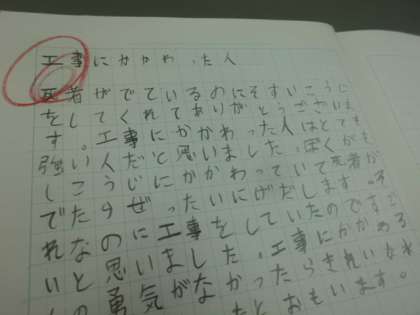 工事にかかわった人
死者がでているのにそすいこうじ
をしてくれてありがとうございま
す。工事にかかわった人はとても
強い人だと思いました。ぼくがも
しこうじにかかわっていて死者が
でたらぜったいにげだします。そ
れなのに工事をしていたのですご
いと思いました。工事にかかわる
の勇気がなかったらきれいな水
たとおもいます。